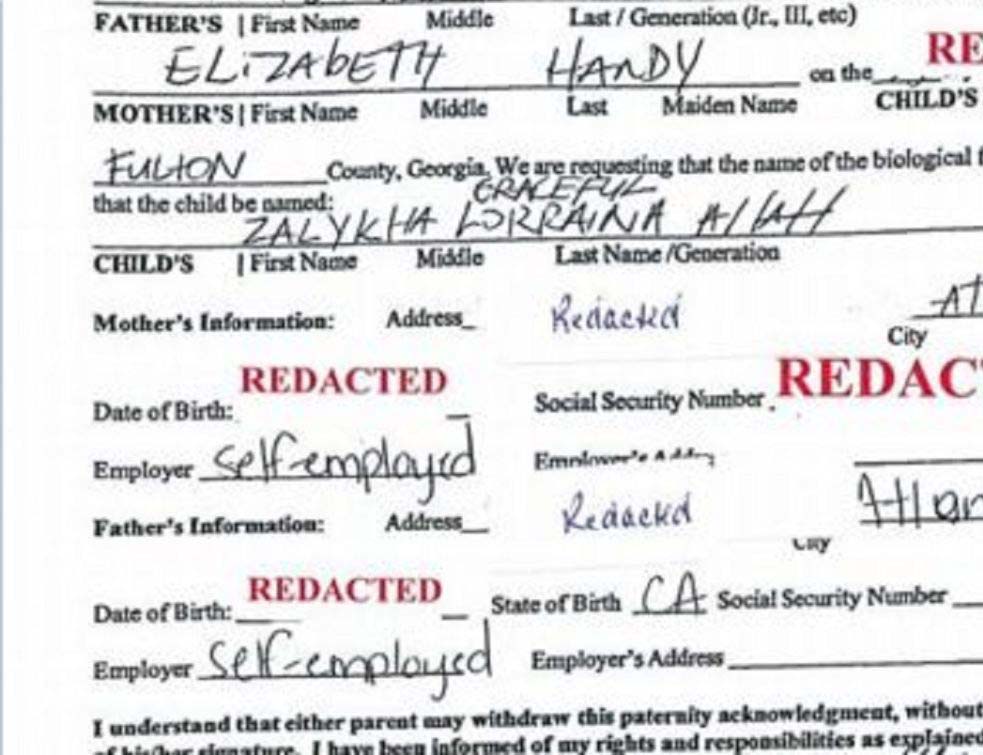 FATHER'S | First Name Middle Last / Generation (Jr., III, etc)
ELIZABETH HANDY on the RE
MOTHER'S | First Name Middle Last Maiden Name CHILD'S
FULTON County, Georgia. We are requesting that the name of the biological f
GRACEFUL
that the child be named:
ZALYKHA LORRAINA Allah
CHILD'S | First Name Middle Last Name /Generation
Mother's Information: Address Redacted AT
City
REDACTED REDAC
Date of Birth: Social Security Number
Employer self-employed Employer's
Father's Information: Address Redacted Atlan
City
REDACTED
Date of Birth: State of Birth CA Social Security Number
Employer self-employed Employer's Address
I understand that either parent may withdraw this paternity acknowledgment, without
of his/her signature. I have been informed of my rights and responsibilities as explained